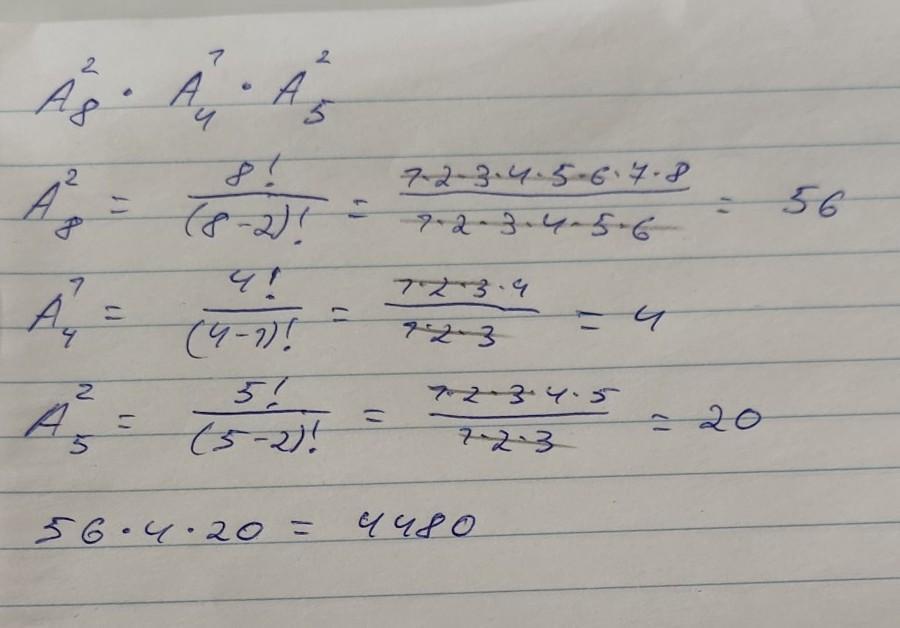 A₈² · A₄¹ · A₅²
A₈² = 8! / (8-2)! = 1·2·3·4·5·6·7·8 / 1·2·3·4·5·6 = 56
A₄¹ = 4! / (4-1)! = 1·2·3·4 / 1·2·3 = 4
A₅² = 5! / (5-2)! = 1·2·3·4·5 / 1·2·3 = 20
56·4·20 = 4480